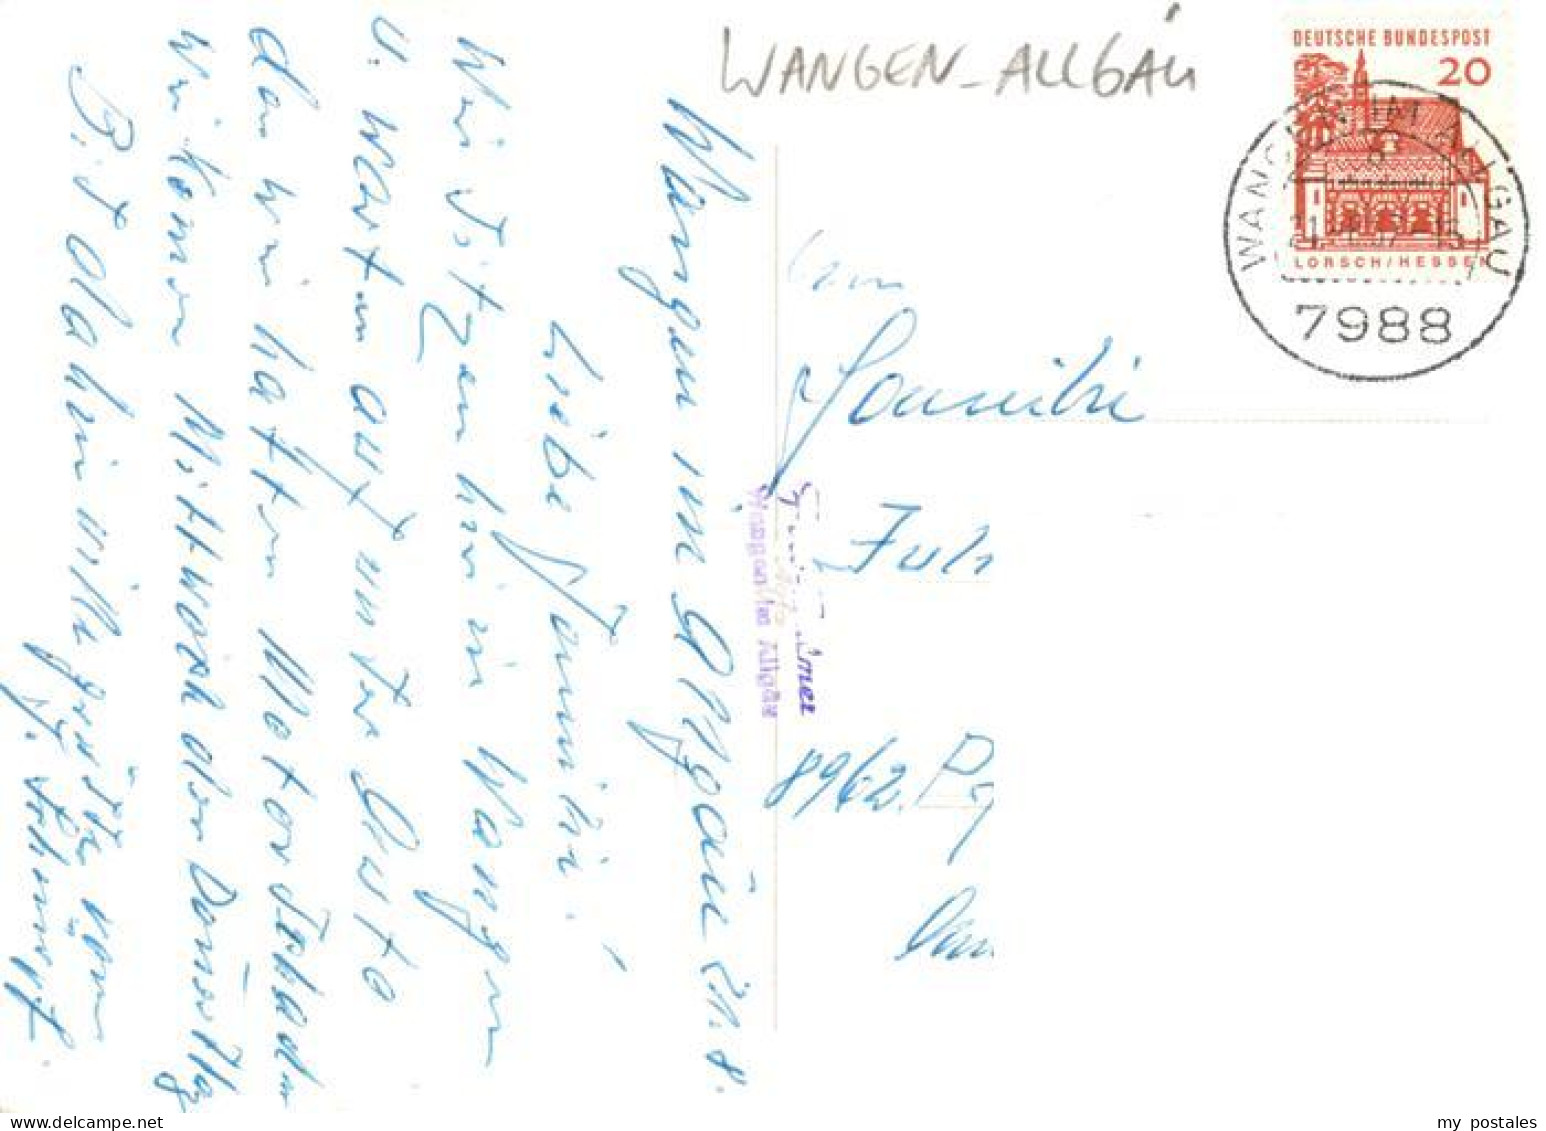 WANGEN-ALLGÄU
DEUTSCHE BUNDESPOST
20
LORSCH/HESSEN
WANGEN IM ALLGÄU
7988
Wangen im Allgäu 21.8.
Liebe Familie!
Wir sitzen hier in Wangen
u. warten auf unser Auto
da wir hatten Motor Schaden
Wir kommen Mittwoch oder Donerstag
B. is dahin viele Grüße von
Fam
Familie
8962 P
Wangen im Allgäu